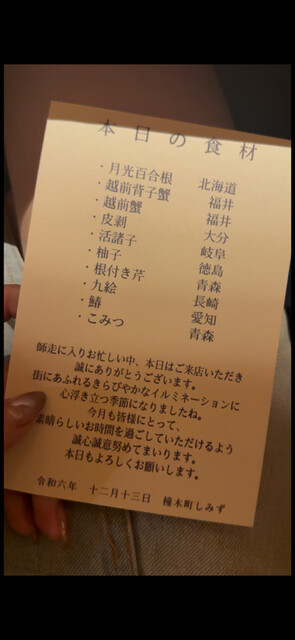 本日の食材
・月光百合根 北海道
・越前背子蟹 福井
・越前蟹 福井
・皮剥 大分
・活諸子 岐阜
・柚子 徳島
・根付き芹 青森
・九絵 長崎
・鰆 愛知
・こみつ 青森
師走に入りお忙しい中、本日はご来店いただき
誠にありがとうございます。
街にあふれるきらびやかなイルミネーションに
心浮き立つ季節になりましたね。
今月も皆様にとって、
素晴らしいお時間を過ごしていただけるよう
誠心誠意努めてまいります。
本日もよろしくお願いします。
令和六年 十二月十三日 橦木町しみず